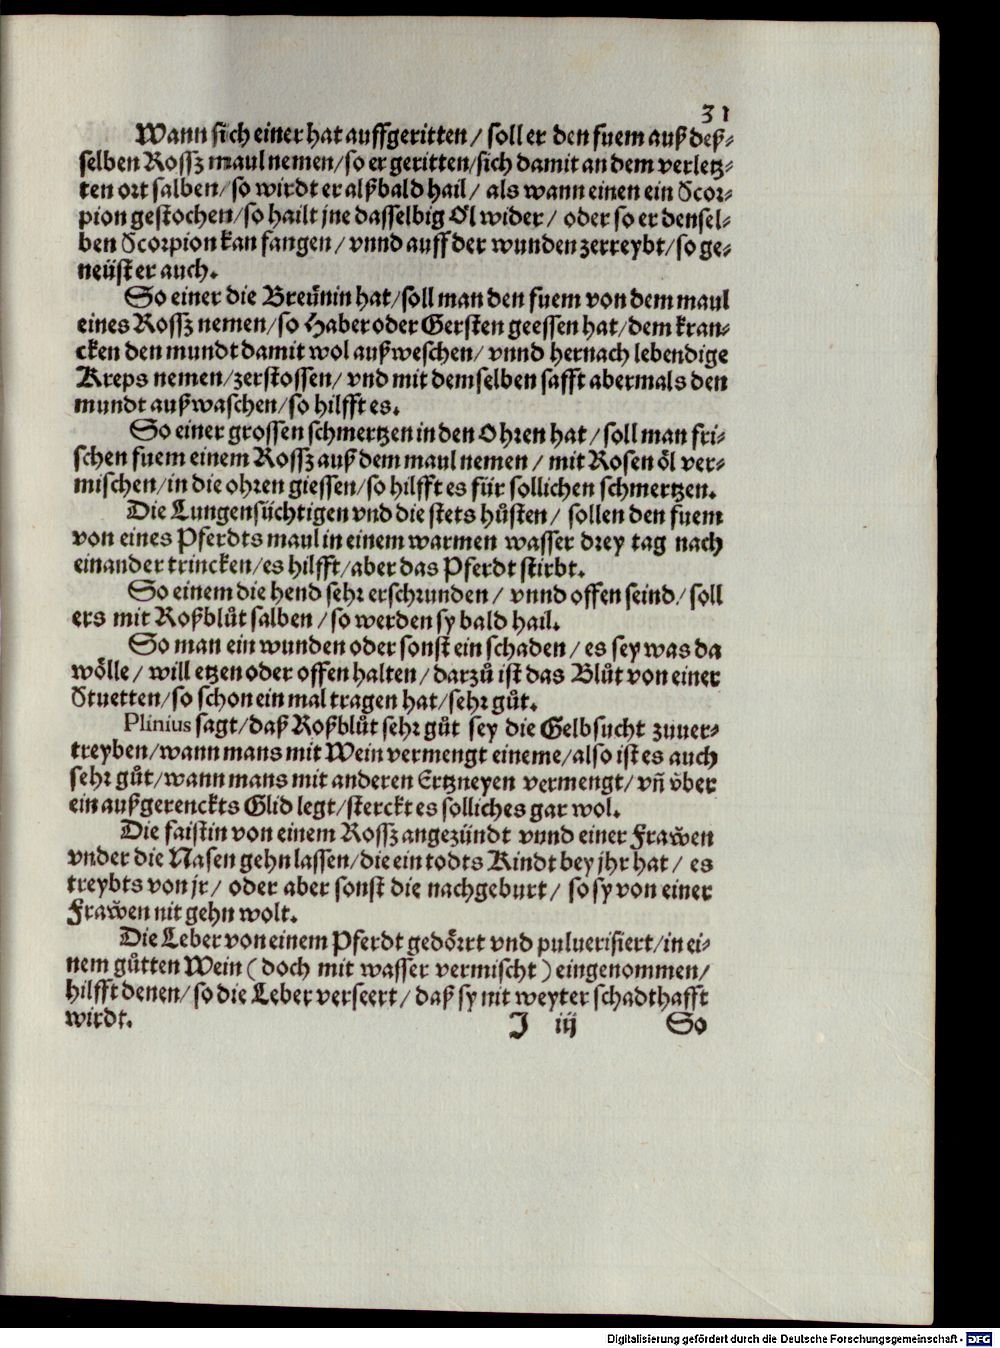 31
Wann sich einer hat auffgeritten / soll er den fuem auß deß-
selben Rossz maul nemen/so er geritten/sich damit an dem verletz-
ten ort salben/so wirdt er alßbald hail / als wann einen ein Scor-
pion gestochen/so hailt jne dasselbig Öl wider / oder so er densel-
ben Scorpion kan fangen / vnnd auff der wunden zerreybt/so ge-
neüst er auch.
So einer die Breünin hat/soll man den fuem von dem maul
eines Rossz nemen/so Haber oder Gersten geessen hat/dem kran-
cken den mundt damit wol außweschen/ vnnd hernach lebendige
Kreps nemen/zerstossen/ vnd mit demselben safft abermals den
mundt außwaschen/so hilfft es.
So einer grossen schmertzen in den Ohren hat / soll man fri-
schen fuem einem Rossz auß dem maul nemen / mit Rosen öl ver-
mischen/in die ohren giessen/so hilfft es für sollichen schmertzen.
Die Lungensüchtigen vnd die stets hůsten / sollen den fuem
von eines Pferdts maul in einem warmen wasser drey tag nach
einander trincken/es hilfft/aber das Pferdt stirbt.
So einem die hend sehr erschrunden / vnnd offen seind/ soll
ers mit Roßblůt salben / so werden sy bald hail.
So man ein wunden oder sonst ein schaden / es sey was da
wölle / will etzen oder offen halten / darzů ist das Blůt von einer
Stuetten/so schon ein mal tragen hat/sehr gůt.
Plinius sagt/daß Roßblůt sehr gůt sey die Gelbsucht zuuer-
treyben/wann mans mit Wein vermengt eineme/also ist es auch
sehr gůt/wann mans mit anderen Ertzneyen vermengt/ vñ vber
ein außgerenckts Glid legt/sterckt es solliches gar wol.
Die faistin von einem Rossz angezündt vnnd einer Frawen
vnder die Nasen gehn lassen/die ein todts Kindt bey jhr hat / es
treybts von jr / oder aber sonst die nachgeburt / so sy von einer
Frawen nit gehn wolt.
Die Leber von einem Pferdt gedörrt vnd puluerisiert/in ei-
nem gůtten Wein ( doch mit wasser vermischt ) eingenommen/
hilfft denen/so die Leber verseert / daß sy nit weyter schadthafft
wirdt.
J iij So
Digitalisierung gefördert durch die Deutsche Forschungsgemeinschaft - DFG